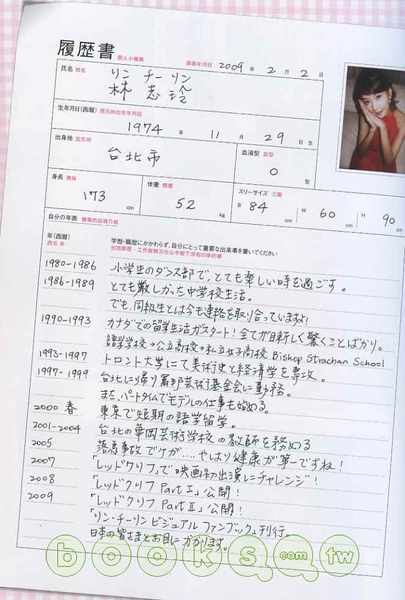 履歴書 個人小檔案 填表年月日 2009 年 2 月 2 日
氏名 姓名 リン チー リン
林 志 玲
生年月日(西暦) 西元的出生年月日
1974 年 11 月 29 日 生
出身地 出生地
台北市
血液型 血型
O 型
身長 身高
173 cm
体重 體重
52 kg
スリーサイズ 三圍
B 84 cm W 60 cm H 90 cm
自分の年表
年(西暦) 西元 年
学歴・職歴にかかわらず、自分にとって重要な出来事を書いてください
1980-1986 小学生のダンス部で、とても楽しい時を過ごす。
1986-1989 とても厳しかった中学校生活。
でも、同級生とは今も連絡を取り合っていますよ!
1990-1993 カナダでの留学生活がスタート! 全てが目新しく驚くことばかり。
語学学校→公立高校→私立女子高校 Bishop Strachan School
1993-1997 トロント大学にて美術史と経済学を専攻。
1997-1999 台北に帰り
芸術基金会に勤務。
また、パートタイムでモデルの仕事も始める。
2000 春 東京で短期の語学留学。
2001-2004 台北の華岡芸術学校の教師を務める
2005 落馬事故でケガ....やっぱり健康が第一ですね!
2007 「レッドクリフ」で映画初出演にチャレンジ!
2008 「レッドクリフ Part I」公開!
2009 「レッドクリフ Part II」公開!
「リン・チーリン ビジュアル ファンブック」刊行。
日本の皆さまとお目にかかります。
books.com.tw